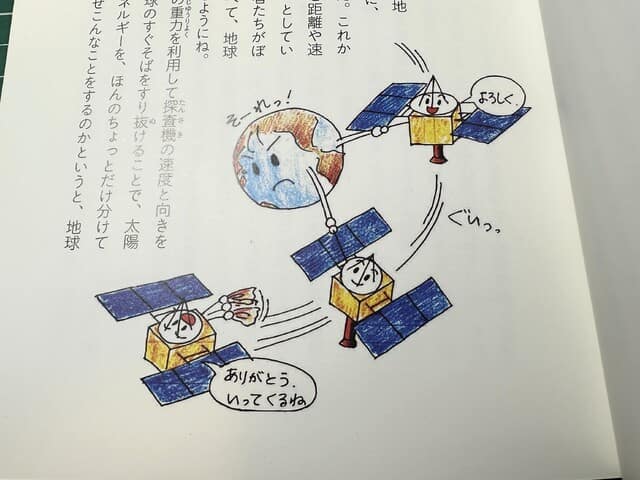 地
に、
。これか
距離や速
としてい
者たちがぼ
て、地球
ようにね。
の重力を利用して探査機の速度と向きを
じゅうりょく
たんさき
球のすぐそばをすり抜けることで、太陽
ぬ
ネルギーを、ほんのちょっとだけ分けて
ぜこんなことをするのかというと、地球
よろしく.
そーれっ!
ぐいっっ
ありがとう.
いってくるね